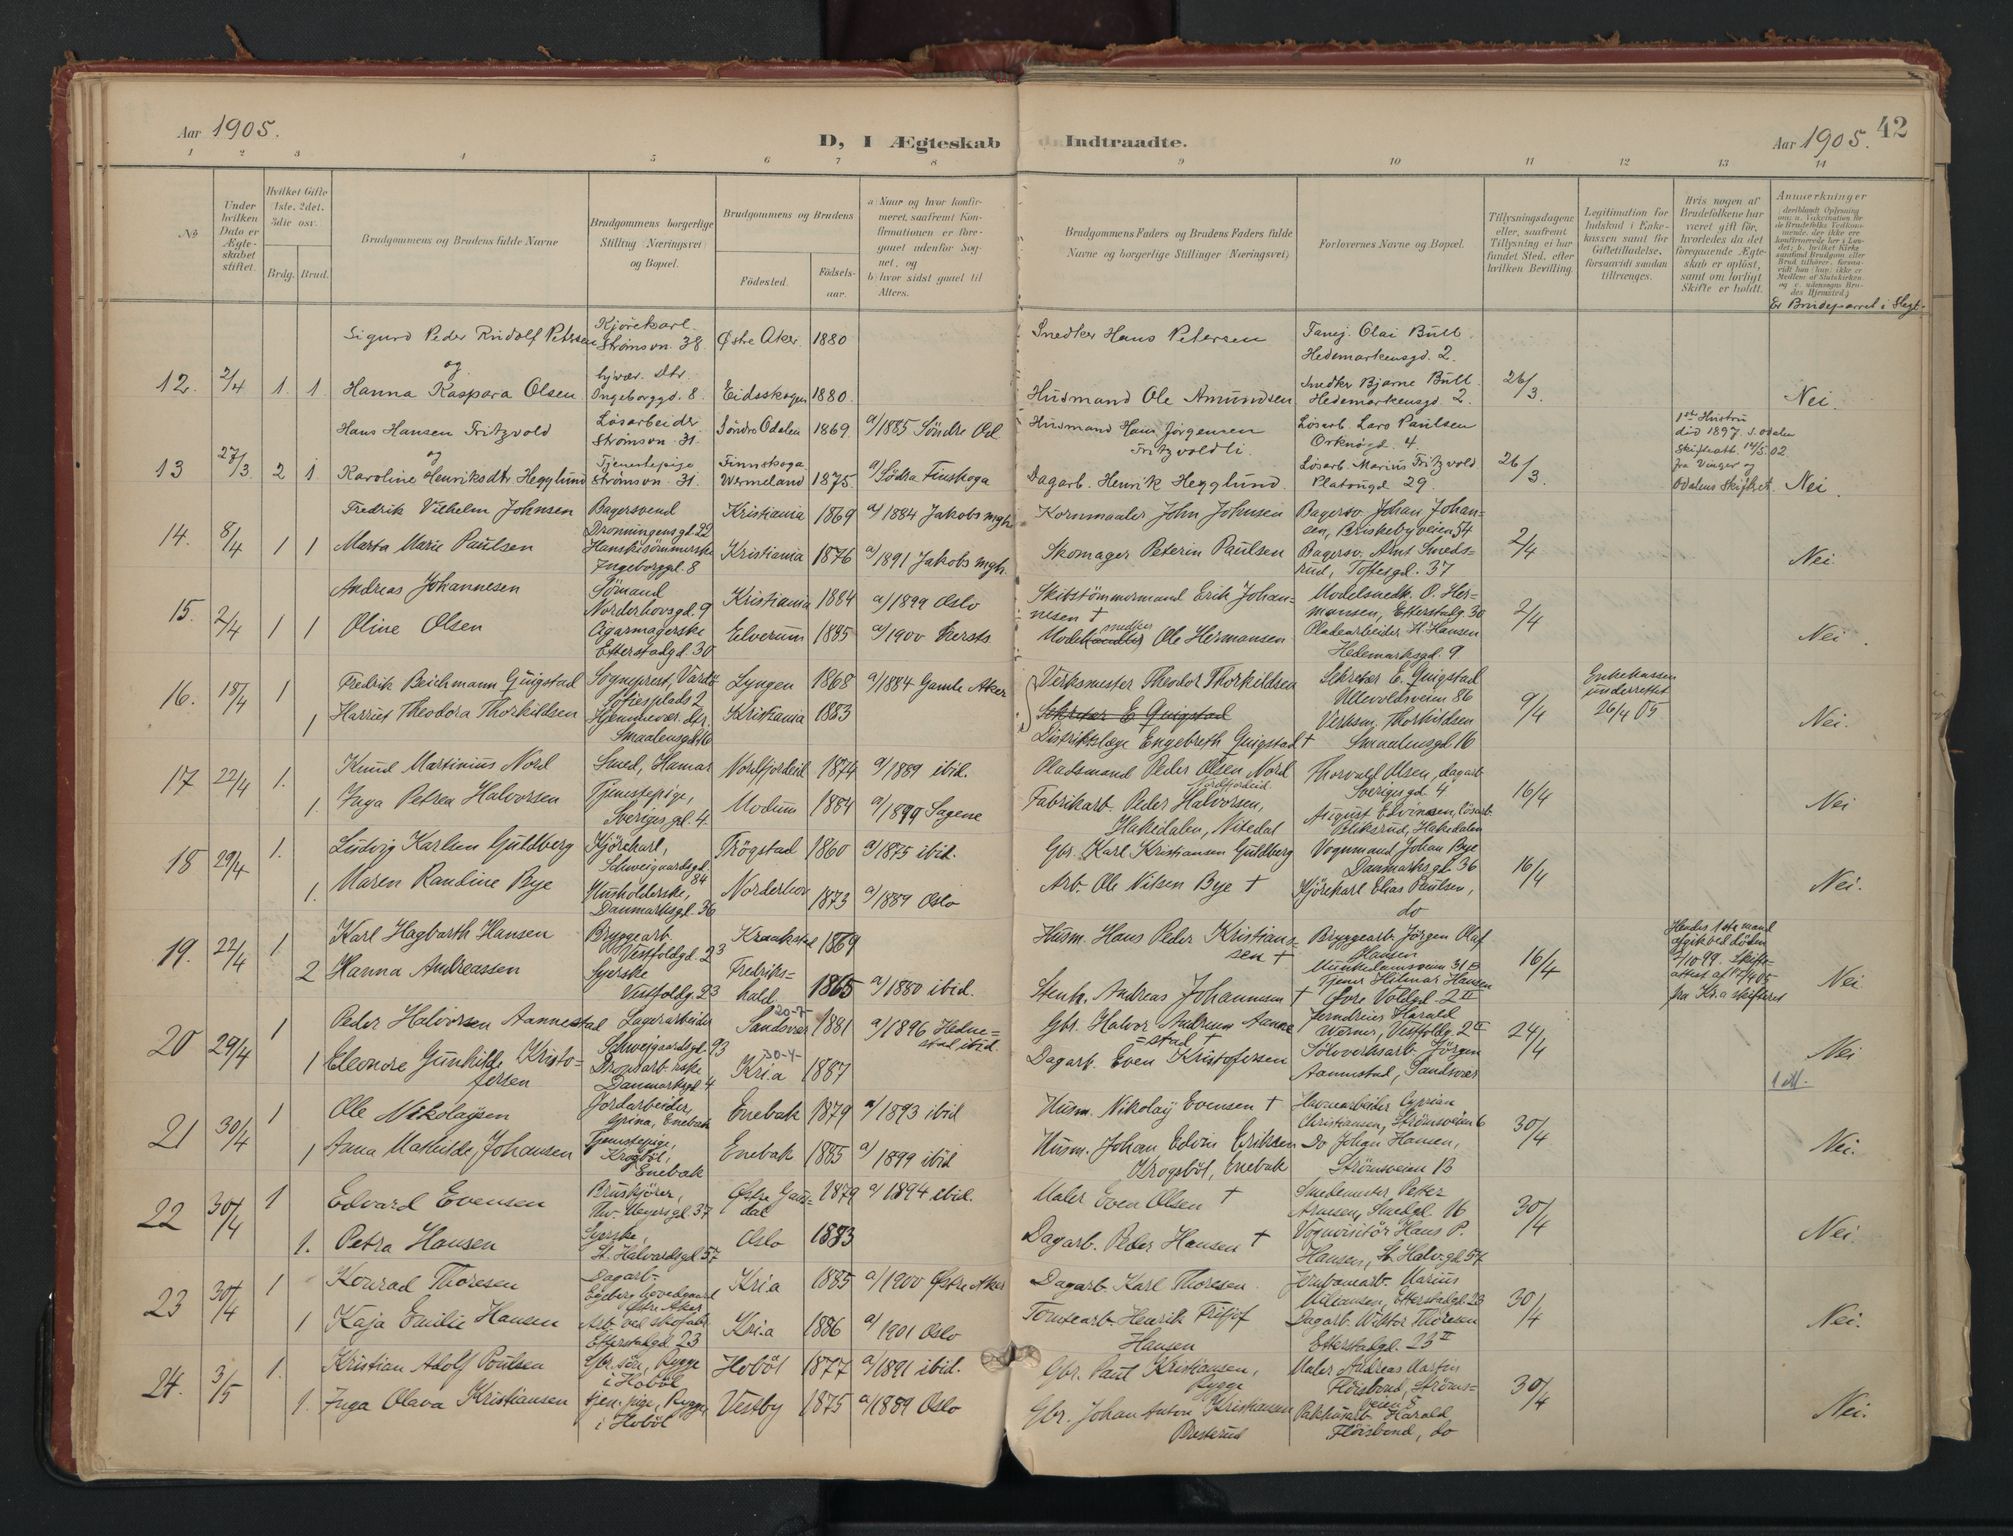 Aar 1905.
D, I Ægteskab Indtraadte.
Aar 1905. 42
1 2 3 4 5 6 7 8 9 10 11 12 13 14
No
Under hvilken Dato er Ægteskabet stiftet.
Hvilket Gifte 1ste, 2det, 3die osv.
Brdg. Brud.
Brudgommens og Brudens fulde Navne
Brudgommens borgerlige Stilling (Næringsvei) og Bopæl.
Brudgommens og Brudens
Födested.
Födselsaar.
a) Naar og hvor konfirmeret, saafremt Konfirmationen er foregaaet udenfor Sognet, og
b) hvor sidst gaaet til Alters.
Brudgommens Faders og Brudens Faders fulde Navne og borgerlige Stillinger (Næringsvei)
Forlovernes Navne og Bopæl.
Tillysningsdagene eller, saafremt Tillysning ei har fundet Sted, efter hvilken Bevilling.
Legitimation for Indskud i Enkekassen samt for Giftetilladelse, forsaavidt saadan tiltrænges.
Hvis nogen af Brudefolkene har været gift før, hvorledes da det foregaaende Ægteskab er opløst, samt om lovligt Skifte er holdt.
Anmærkninger
Er Brudeparret i Slegt.
12. 2/4 1. 1.
Sigurd Peder Rudolf Petersen Kjørekarl. Strömsvn. 38. Østre Aker. 1880 Snedker Hans Petersen Olai Bull Hedemarkensgd. 2.
og
Hanna Kaspara Olsen hjvær. dtr. Ingeborggd. 8. Eidsskogen 1880. Husmand Ole Amundsen Snedker Bjarne Bull Hedemarkensgd. 2. 26/3. Nei.
13 27/3 2 1
Hans Hansen Fritzvold Løsarbeider Strømsvn. 31. Söndre Odalen 1869. a/1885 Söndre Od. Husmand Hans Jørgensen Fritzvoldli. Løsarb. Lars Paulsen Orknögd. 4
og
Karoline Henriksdtr Hegglund Tjenestepige Strømsvn. 31. Finnskoga Wermeland 1875. a/Södra Finskoga Dagarb. Henrik Hegglund. Løsarb. Marius Fritzvold Platougd 29. 26/3. 1ste Hustru död 1897 S. Odalen Skifteatt. 14/5.02. fra Vinger og Odalens Skifteret. Nei.
14. 8/4 1 1
Fredrik Vilhelm Johnsen Bagersvend Dronningensgd. 22 Kristiania 1869 a/1884 Jakobs mgh. Kornmaaler John Johnsen Bagersv. Johan Johansen, Briskebyveien 54
Marta Marie Paulsen Hanskesömmerske Ingeborggd. 8 Kristiania 1876 a/1891 Jakobs mgh. Skomager Peterin Paulsen Bagersv. Amt Smedsrud, Toftesgd. 37 2/4 Nei.
15. 2/4 1 1
Andreas Johannesen Sömand Norderhovsgd. 9 Kristiania 1884 a/1899 Oslo Skibstömmermand Erik Johannesen † Modelsnedk. O. Hermansen, Etterstadg. 30
Oline Olsen Cigarmagerske Etterstadgd. 30 Elverum 1885 a/1900 Modelsnedker Ole Hermansen Pladearbeider H. Hansen Hedemarksgd. 9 2/4 Nei.
16. 18/4 1 1
Fredrik Beichmann Quigstad Sogneprest, Vardö Lyngen 1868 a/1884 Gamle Aker Verksmester Theodor Thorkildsen Sekretær E. Quigstad Ullevoldsveien 86 Enkekassen underrettet 26/4 05
Sofiesplads 2
Harriet Theodora Thorkildsen Hjemmevær. dtr. Smaalensgd. 16 Kristiania 1883 Sekretær E. Quigstad Distriktslæge Engebreth Quigstad † Verksm. Thorkildsen Smaalensgd 16 9/4 Nei.
17 22/4 1. 1.
Knud Martinius Nord Smed, Hamar Nordfjordeid 1874 a/1889 ibid. Pladsmand Peder Olsen Nord Nordfjordeid. Thorvald Olsen, dagarb. Sverigesgd. 4
Inga Petrea Halvorsen Tjenestepige, Sverigesgd. 4. Modum 1884 a/1899 Sagene Fabrikarb. Peder Halvorsen, Hakedalen, Nitedal August Edvinsen, Løsarb. Hakedalen 16/4 Nei
18 29/4 1. 1.
Ludvig Karlsen Guldberg Kjörekarl, Schweigaardsgd. 84 Trögstad 1860 a/1875 ibid. Gbr. Karl Kristiansen Guldberg Vognmand Johan Bye Danmarksgd. 36
Maren Randine Bye Husholderske, Danmarksgd. 36 Norderhov 1873 a/1889 Oslo Arb. Ole Nilsen Bye † Kjörekarl Elias Paulsen, do 16/4 Nei.
19. 22/4 1 2
Karl Hagbarth Hansen Bryggearb. Vestfoldgd. 23 Kraakstad 1869 Husm. Hans Peder Kristiansen † Bryggearb. Jörgen Olaf Hansen Munkedamsveien 31 B
Hanna Andreassen Syerske Vestfoldg. 23 Fredrikshald 1865 a/1880 ibid. Stenh. Andreas Johannsen † Tjener Hilmar Hansen Øvre Voldgd. 2 II 16/4 Hendes 1ste mand afgik ved döden 2/10 99. Skifteattest af 17/4 05 fra Kr.a skifteret Nei
20 29/4 1 1
Peder Halvorsen Aannestad Lagerarbeider Schweigaardsgd. 93 Sandsvær 1881 a/1896 Hedenstad ibid. Gbr. Halvor Andersen Aannestad † Jerndreier Harald Werner, Vestfoldg. 2 II
Eleonore Gunhilde Kristofersen Danmarksgd. 4 Kr.a 1887 Dagarb. Even Kristofersen Sölvverksarb. Jörgen Aannestad, Sandsvær 24/4 Nei
21 30/4 1 1
Ole Nikolaysen Jordarbeider, Grina, Enebak Enebak 1879 a/1893 ibid Husm. Nikolay Evensen † Havnearbeider Cyprian Christiansen, Strömsveien 6
Anna Mathilde Johansen Tjenestepige, Krogböl, Enebak Enebak 1885 a/1899 ibid Husm. Johan Edvin Eriksen Krogsböl, Enebak Do Johan Hansen, Strömsveien 13 30/4 Nei.
22 30/4 1 1.
Edvard Evensen Bruskjörer, Thv. Meyersgd. 37 Østre Gausdal 1879 a/1894 ibid. Maler Even Olsen † Smedemester Petter Arnesen, Smedgd. 16
Petra Hansen Syerske, St. Halvardsgd. 57 Oslo 1883 Dagarb. Peder Hansen † Vognvisitör Hans P. Hansen, St. Halv.gd. 57 30/4 Nei.
23 30/4 1 1
Konrad Thoresen Dagarb. Østre Aker Kr.a 1885 a/1900 Østre Aker Dagarb. Karl Thoresen. Jernbanearb. Marius Etterstadgd. 23
Kaja Emilie Hansen Arb. ved skofabr. Etterstadgd. 23 Kr.a 1886 a/1901 Oslo Tomtearb. Henrik Fritjof Hansen Dagarb. Viktor Thoresen Etterstadgd. 23 II 30/4 Nei.
24. 3/5 1. 1.
Kristian Adolf Poulsen Gbr. sön, Rygge i Hoböl Hoböl 1877 a/1891 ibid. Gbr. Paul Kristiansen, Rygge Maler Andreas Martin Flöisbond, Strömsveien 8
Inga Olava Kristiansen tjen. pige, Rygge, i Hoböl Vestby 1875 a/1889 Oslo Gbr. Johan Anton Kristiansen Pakhusarb. Harald Flöisbond, do 30/4 Nei.